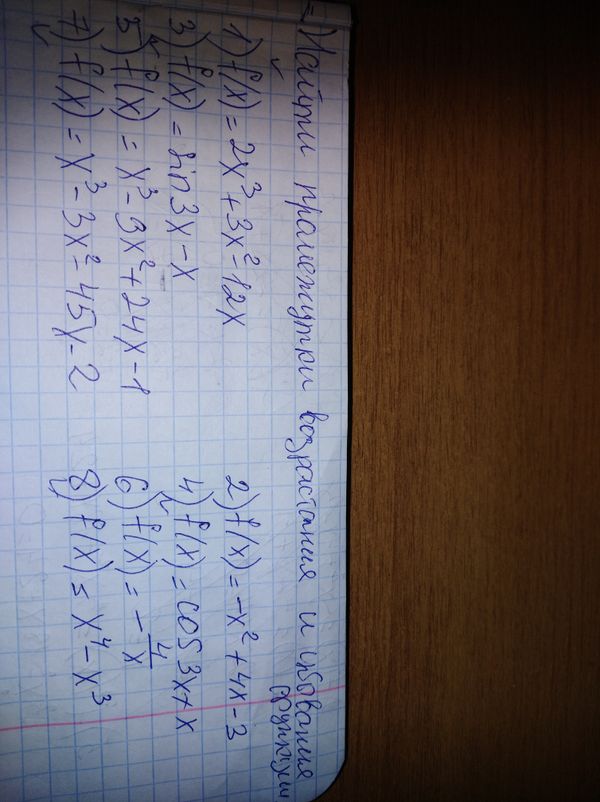 Найти промежутки возрастания и убывания функции
1) f(x) = 2x³ + 3x² - 12x
2) f(x) = -x² + 4x - 3
3) f(x) = sin 3x - x
4) f(x) = cos 3x + x
5) f(x) = x³ - 3x² + 24x - 1
6) f(x) = - 4/x
7) f(x) = x³ - 3x² - 45x - 2
8) f(x) = x⁴ - x³